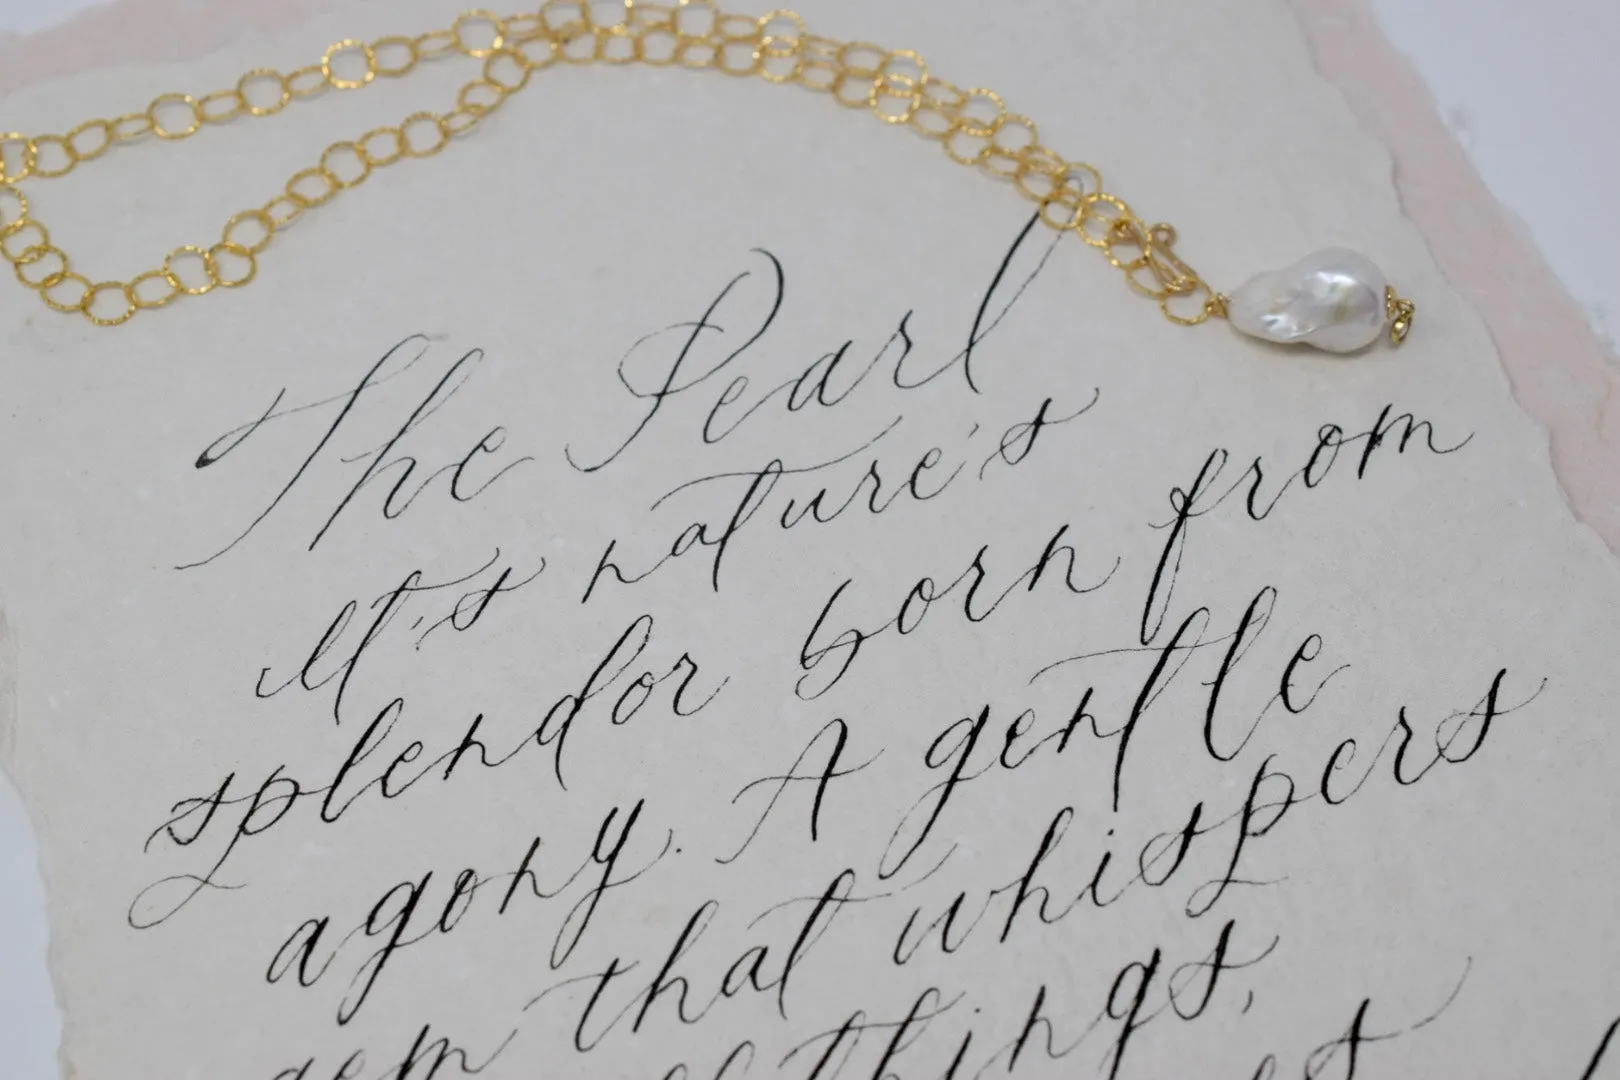 The Pearl
It's nature's
splendor born from
agony. A gentle
gem that whispers
of things,